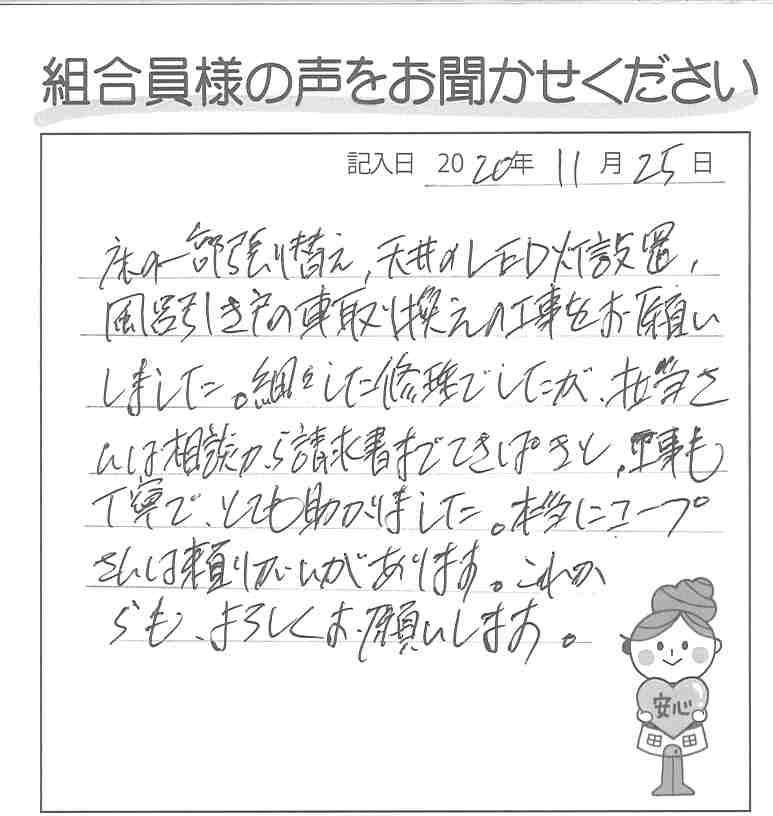 組合員様の声をお聞かせください
記入日 2020年 11月25日
床の一部張り替え,天井のLED灯設置,
風呂引き戸の車取り換えの工事をお願い
しました。細々した修理でしたが、担当さ
んは相談から請求書までてきぱきと、工事も
丁寧で、とても助かりました。本当にコープ
さんは頼りがいがあります。これか
らも、よろしくお願いします。
安心